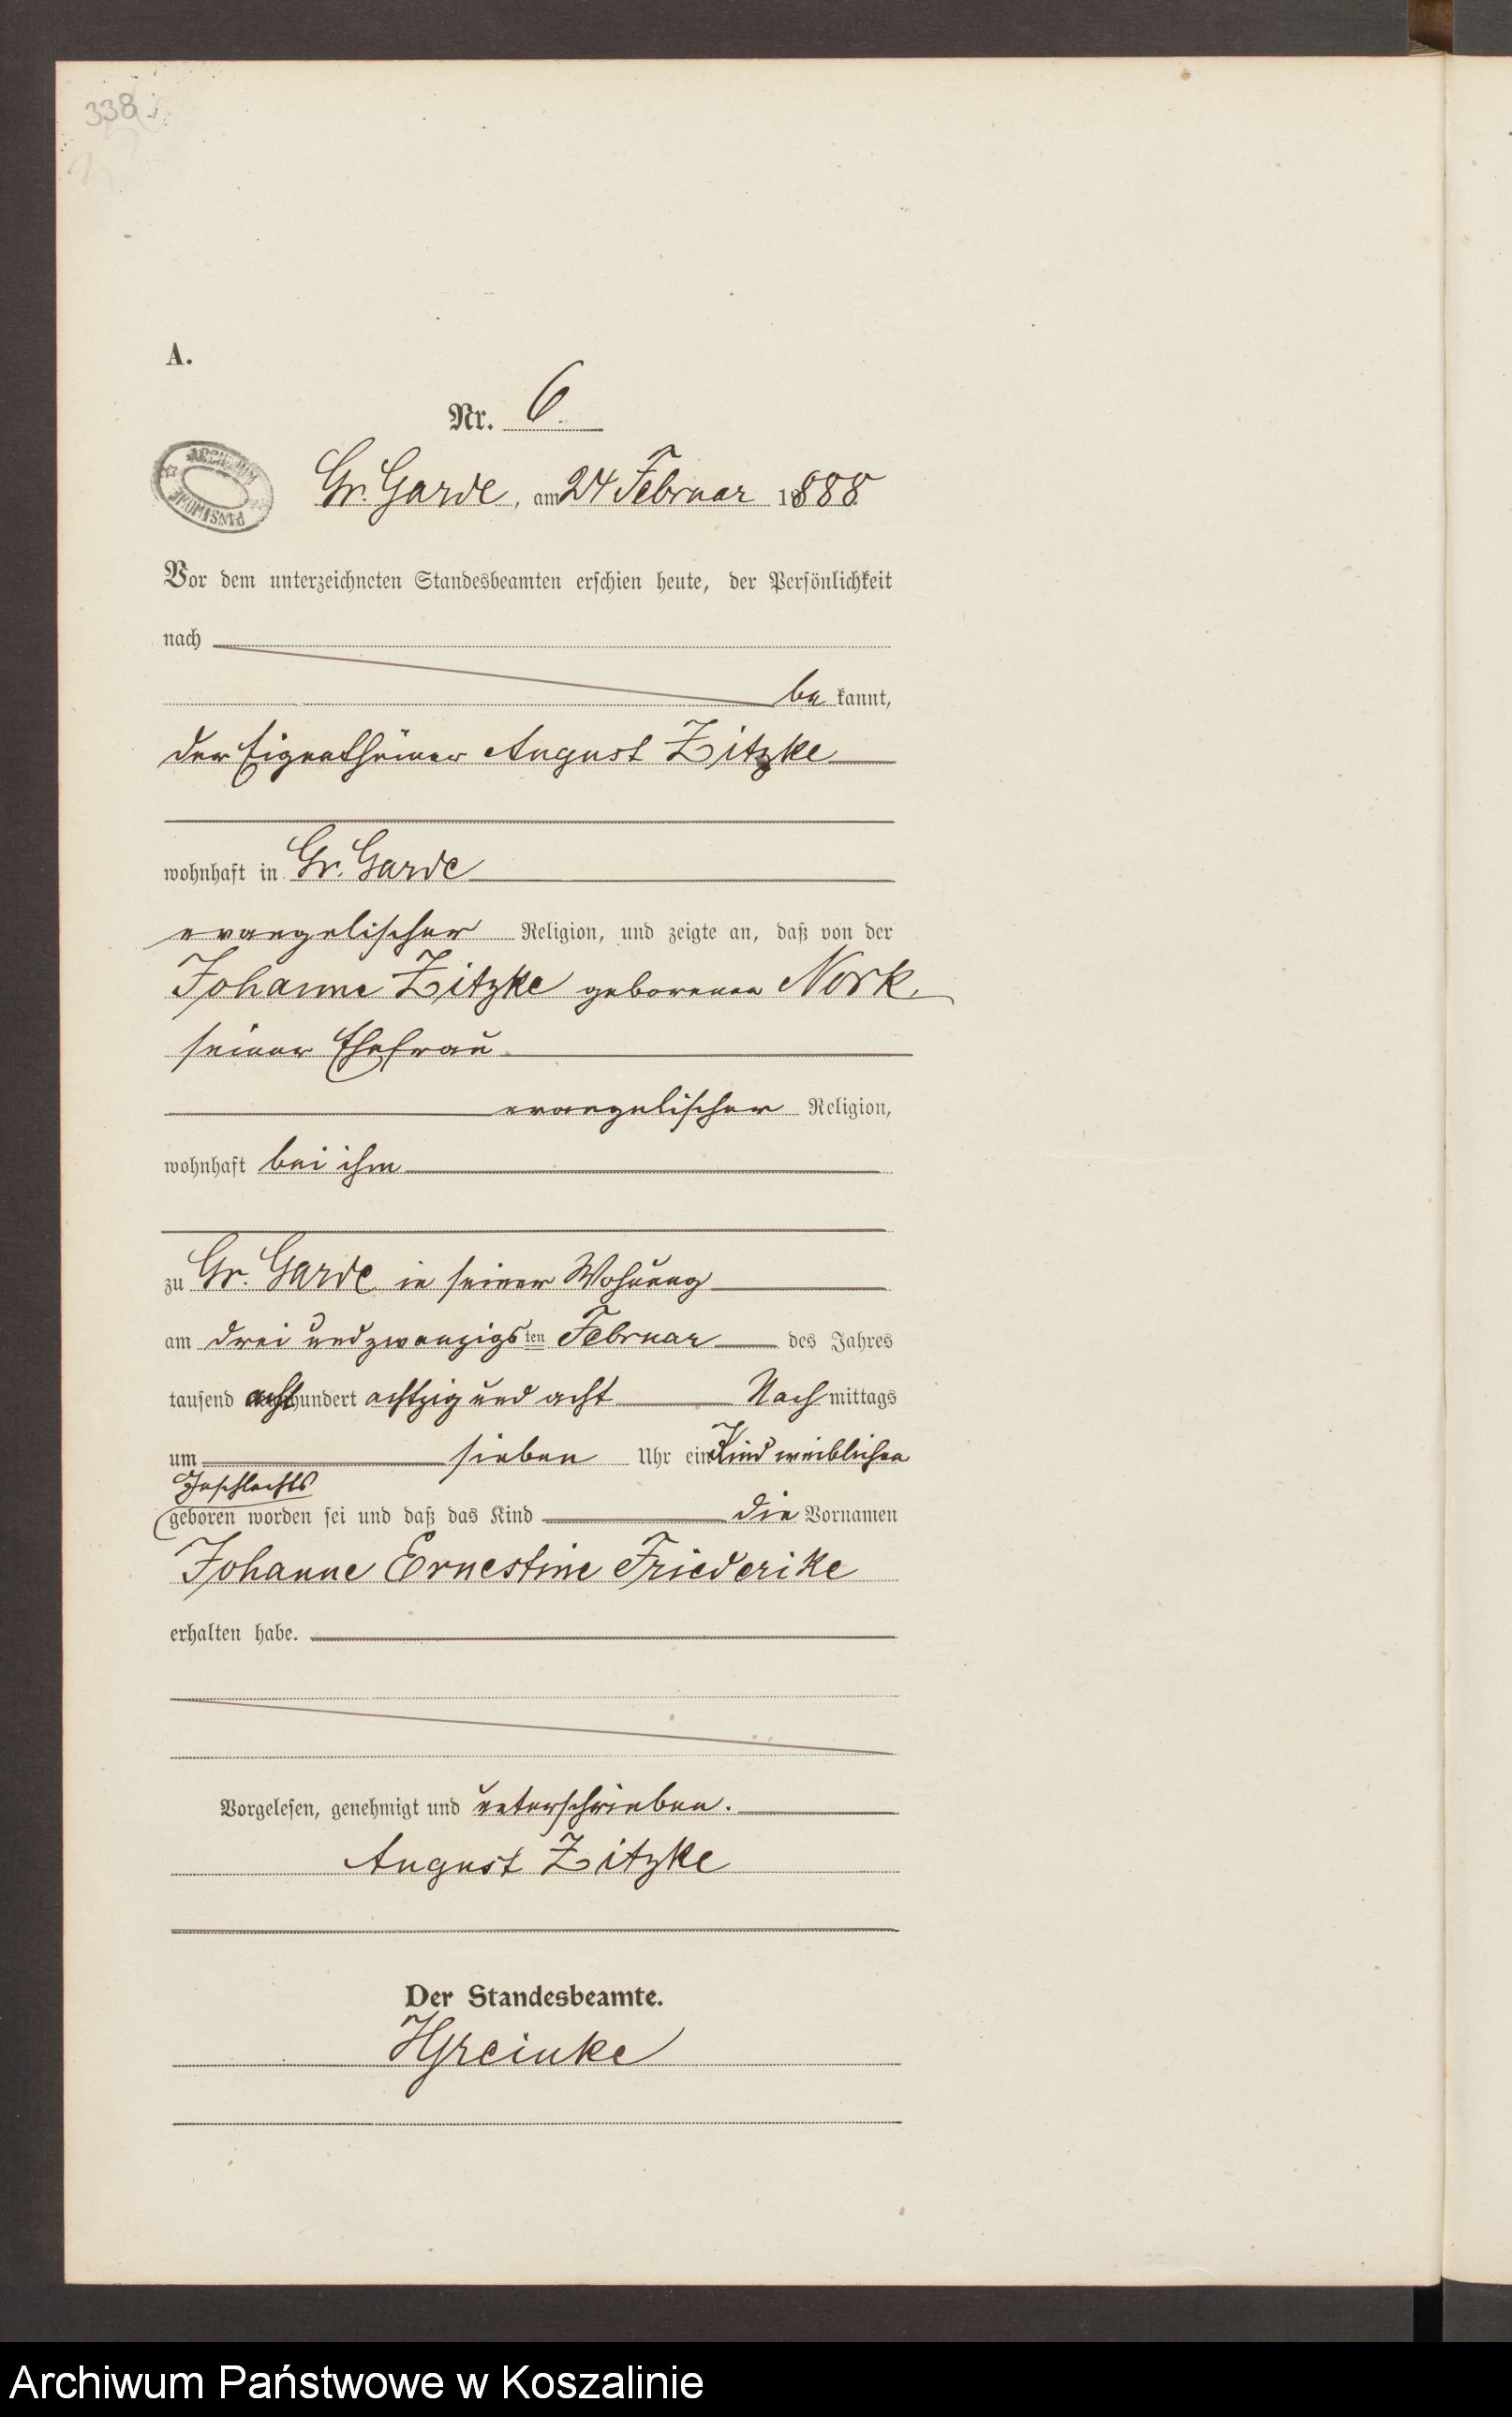 338
A.
Nr. 6.
ARCHIWUM PAŃSTWOWE
Gr. Garde, am 24 Februar 1888
Vor dem unterzeichneten Standesbeamten erschien heute, der Persönlichkeit
nach
be kannt,
der Eigenthümer August Zitzke
wohnhaft in Gr. Garde
evangelischer Religion, und zeigte an, daß von der
Johanne Zitzke geborenen Nork,
seiner Ehefrau
evangelischer Religion,
wohnhaft bei ihm
zu Gr. Garde in seiner Wohnung
am drei und zwanzigsten Februar des Jahres
tausend achthundert achtzig und acht Nachmittags
um sieben Uhr ein Kind weiblichen
Geschlechts
geboren worden sei und daß das Kind die Vornamen
Johanne Ernestine Friederike
erhalten habe.
Vorgelesen, genehmigt und unterschrieben.
August Zitzke
Der Standesbeamte.
Archiwum Państwowe w Koszalinie